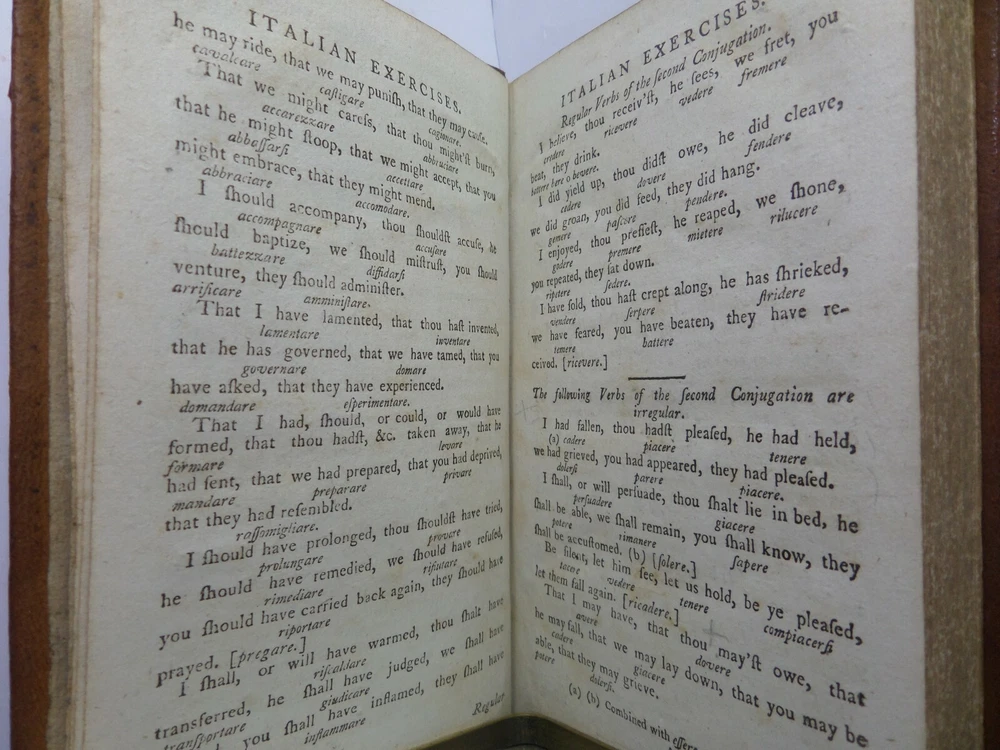 ITALIAN EXERCISES.
he may ride, that we may puniſh, that they may cauſe.
cavalcare caſtigare cagionare.
That we might careſs, that thou might'ſt burn,
accarezzare abbruciare
that he might ſtoop, that we might accept, that you
abbaſſarſi accettare
might embrace, that they might mend.
abbraciare accomodare.
I ſhould accompany, thou ſhouldſt accuſe, he
accompagnare accuſare
ſhould baptize, we ſhould miſtruſt, you ſhould
battezzare diffidarſi
venture, they ſhould adminiſter.
arriſicare amminiſtare.
That I have lamented, that thou haſt invented,
lamentare inventare
that he has governed, that we have tamed, that you
governare domare
have aſked, that they have experienced.
domandare eſperimentare.
That I had, ſhould, or could, or would have
formed, that thou hadſt, &c. taken away, that he
formare levare
had ſent, that we had prepared, that you had deprived,
mandare preparare privare
that they had reſembled.
raſſomigliare.
I ſhould have prolonged, thou ſhouldſt have tried,
prolungare provare
he ſhould have remedied, we ſhould have refuſed,
rimediare rifutare
you ſhould have carried back again, they ſhould have
riportare
prayed. [pregare.]
I ſhall, or will have warmed, thou ſhalt have
riſcaldare
transferred, he ſhall have judged, we ſhall have
transportare giudicare
you ſhall have inflamed, they ſhall have
inflammare
Regular
ITALIAN EXERCISES.
Regular Verbs of the ſecond Conjugation.
I believe, thou receiv'ſt, he ſees, we fret, you
credere ricevere vedere fremere
beat, they drink.
battere bere o bevere.
I did yield up, thou didſt owe, he did cleave,
cedere dovere fendere
we did groan, you did feed, they did hang.
gemere paſcere pendere.
I enjoyed, thou preſſeſt, he reaped, we ſhone,
godere premere mietere rilucere
you repeated, they ſat down.
ripetere ſedere.
I have ſold, thou haſt crept along, he has ſhrieked,
vendere ſerpere ſtridere
we have feared, you have beaten, they have re-
temere battere
ceived. [ricevere.]
The following Verbs of the ſecond Conjugation are
irregular.
I had fallen, thou hadſt pleaſed, he had held,
(a) cadere piacere tenere
we had grieved, you had appeared, they had pleaſed.
dolerſi parere piacere.
I ſhall, or will perſuade, thou ſhalt lie in bed, he
perſuadere giacere
ſhall be able, we ſhall remain, you ſhall know, they
potere rimanere ſapere
ſhall be accuſtomed. (b) [ſolere.]
Be ſilent, let him ſee, let us hold, be ye pleaſed,
tacere vedere tenere compiacerſi
let them fall again. [ricadere.]
That I may have, that thou may'ſt owe, that
avere dovere
he may fall, that we may lay down, that you may be
cadere giacere
able, that they may grieve.
potere dolerſi.
(a) (b) Combined with eſſere